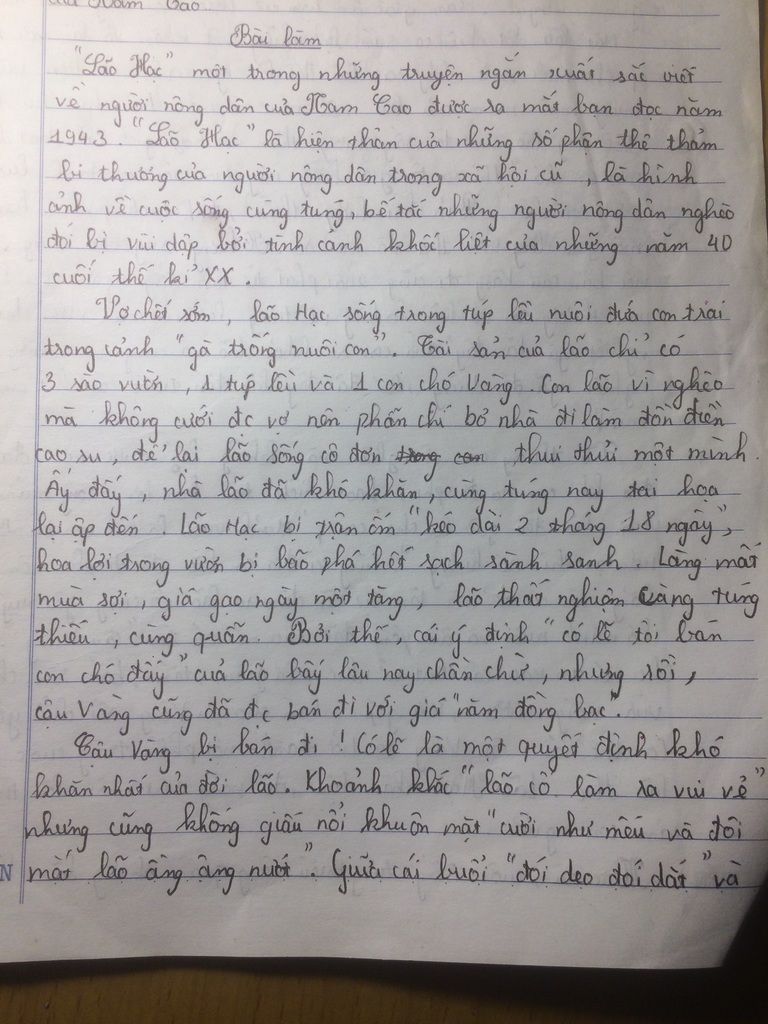 của Nam Cao.
Bài làm
"Lão Hạc" một trong những truyện ngắn xuất sắc viết
về người nông dân của Nam Cao được ra mắt bạn đọc năm
1943. "Lão Hạc" là hiện thân của những số phận thê thảm
bi thương của người nông dân trong xã hội cũ, là hình
ảnh về cuộc sống cùng tung, bế tắc những người nông dân nghèo
đói bị vùi dập bởi tình cảnh khốc liệt của những năm 40
cuối thế kỉ XX.
Vợ chết sớm, lão Hạc sống trong túp lều nuôi đứa con trai
trong cảnh "gà trống nuôi con". Tài sản của lão chỉ có
3 sào vườn, 1 túp lều và 1 con chó Vàng. Con lão vì nghèo
mà không cưới đc vợ nên phẫn chí bỏ nhà đi làm đồn điền
cao su, để lại lão sống cô đơn trong con thui thủi một mình.
Ấy đấy, nhà lão đã khó khăn, cùng túng nay tai họa
lại ập đến. Lão Hạc bị trận ốm "kéo dài 2 tháng 18 ngày",
hoa lợi trong vườn bị bão phá hết sạch sành sanh. Làng mất
mùa sợi, giá gạo ngày một tăng, lão thất nghiệp càng túng
thiếu, cùng quẫn. Bởi thế, cái ý định "có lẽ tôi bán
con chó đấy" của lão bấy lâu nay chần chừ, nhưng rồi,
cậu Vàng cũng đã đc bán đi với giá "năm đồng bạc".
Cậu Vàng bị bán đi! Có lẽ là một quyết định khó
khăn nhất của đời lão. Khoảnh khắc "lão cố làm ra vui vẻ"
nhưng cũng không giấu nổi khuôn mặt "cười như mếu và đôi
mắt lão ầng ậng nước". Giữa cái buổi "đói deo đói dắt" và